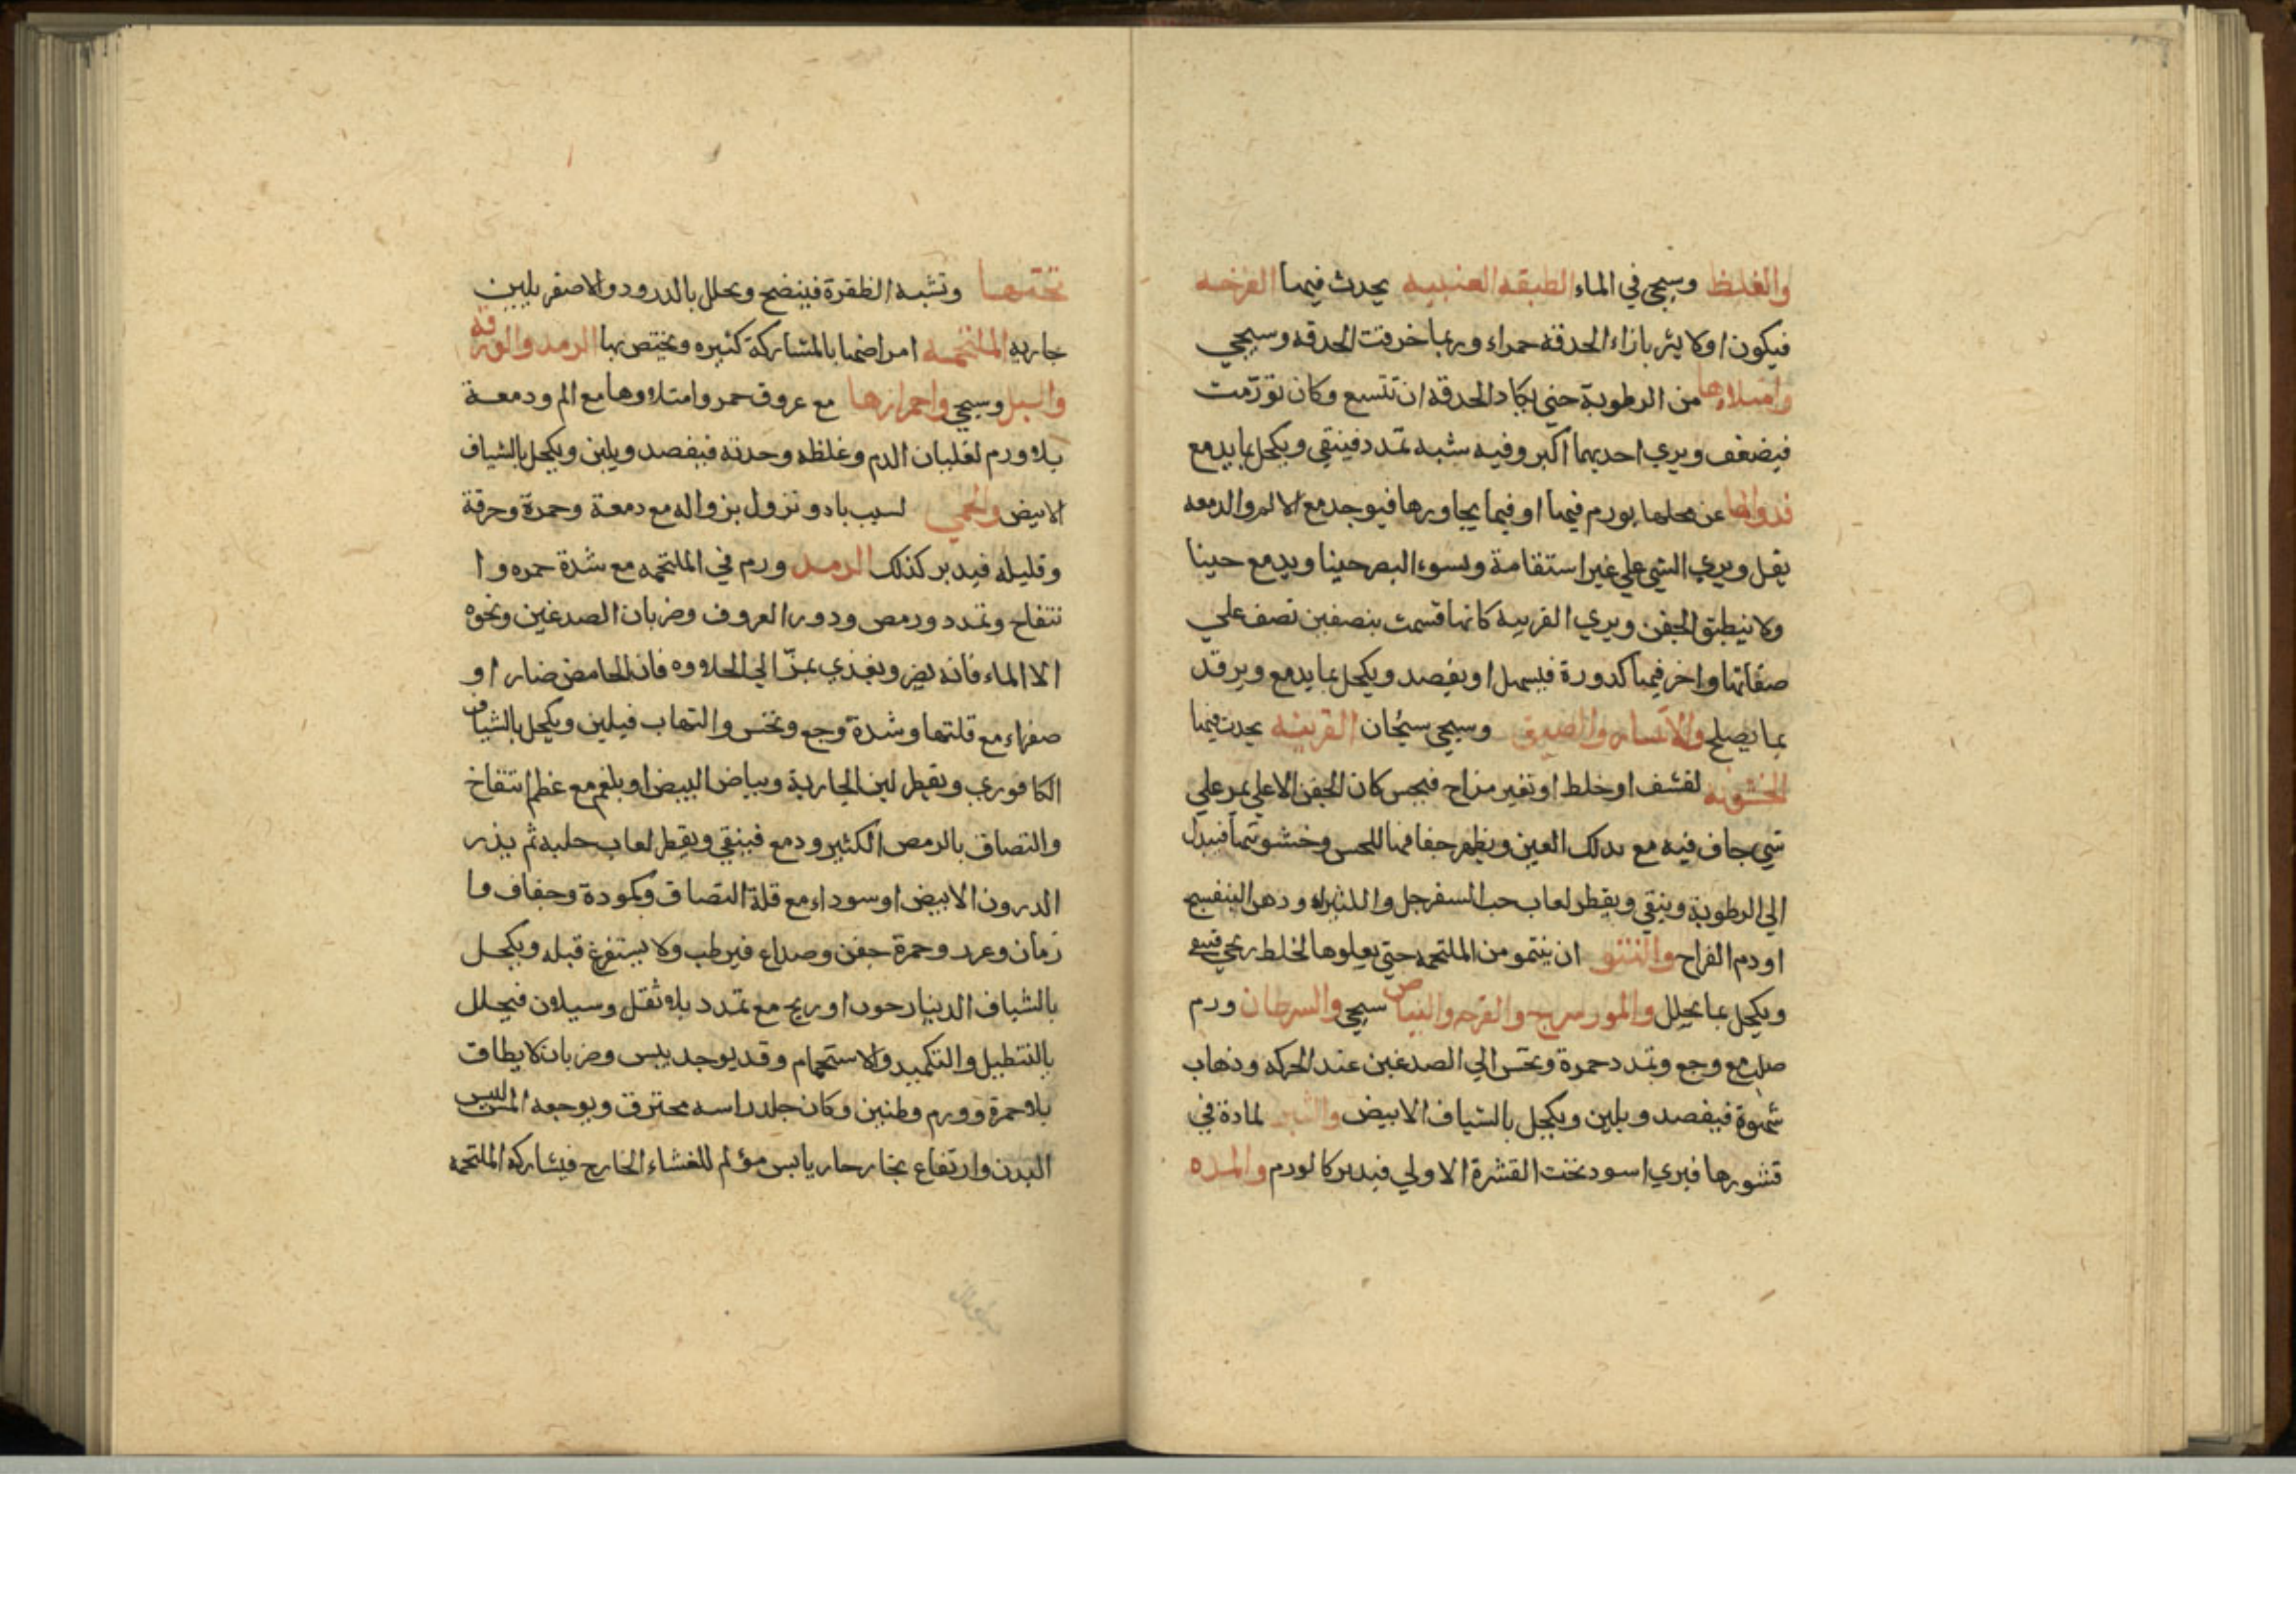 والغلظ وسيجي في الماء الطبقه العنبيه يحدث فيها القرحه
فيكون اولا بثر بازاء الحدقة حمراء وربما خرقت الحدقه وسيجي
وامتلاءها من الرطوبة حتي يكاد الحدقة ان تتسع وكان تورّمت
فيضعف ويري احديهما اكبر وفيه شبه تمدد فينقي ويكحل بما يدمع
فزوالها عن محلها بورم فيها او فيما يجاورها فيوجد مع الالم والدمعه
يقل ويري الشي علي غير استقامة ولسوء البصر حينا ويدمع حينا
ولا ينطبق الجفن ويري القرنيه كانها قسمت بنصفين نصف علي
صفائها واخر فيها كدورة فيسهل او يفصد ويكحل بما يدمع وبرقد
بما يصلح والاتساع والضيق وسيجي سيجان القرنيه يحدث فيها
الخشونه لقشف او خلط او تغير مزاج فيحس كان الجفن الاعلي يمر علي
شي جاف فيه مع بدلك العين ويظهر جفافها للحس وخشونتها فيبدل
الي الرطوبة وينقي ويقطر لعاب حب السفرجل والكثيراء ودهن البنفسج
او دم الفراخ والنتو ان ينتو من الملتحمه حتي يعلوها لخلط ريحي
ويكحل بما يحلل والمورسرج والقرحه والبياض سيجي والسرطان ورم
صلب مع وجع وتمدد حمرة ونخس الي الصدغين عند الحركه وذهاب
شهوة فيفصد ويلين ويكحل بالشياف الابيض والبثر لمادة في
قشورها فيري اسود تحت القشرة الاولي فيدبر كالورم والمده
تحتها وتشبه الظفرة فينضح ويحلل بالذرور والاصفر بلبن
جاريه الملتحمه امراضها بالمشاركة كثيره ويختص بها الرمد والورقه
والسبل وسيجي واحمرارها مع عروق حمر وامتلاوها مع الم ودمعة
بلا ورم لغليان الدم وغلظه وحدته فيفصد ويلين ويكحل بالشياف
الابيض والحمي لسبب باد وتزول بزواله مع دمعة وحمرة وحرقة
وقليله فيدبر كذلك الرمد ورم في الملتحمه مع شدة حمره وا
نتفاخ وتمدد ورمص ودور العروق وضربان الصدغين ونحوه
الا الماء فانه يضر ويغذي بمزّ الي الحلاوه فان الحامض ضار او
صفراء مع قلتها وشدة وجع ونخس والتهاب فيلين ويكحل بالشياف
الكافوري ويقطر لبن الجارية وبياض البيض او بلغم مع عظم انتفاخ
والتصاق بالرمص الكثير ودمع فينقي ويقطر لعاب حلبه ثم يذر
الدرون الابيض او سوداء مع قلة التصاق وكمودة وجفاف ما
زمان وعرد وحمرة جفن وصداع فيرطب ولا يستفرغ قبله ويكحل
بالشياف الدينارحون او ريح مع تمدد بلا ثقل وسيلان فيحلل
بالتنطيل والتكميد والاستحمام وقد يوجد يبس وضربان لا يطاق
بلا حمرة وورم وطنين وكان جلد راسه محترق ويوجعه المس لليبس
البدن وارتفاع بخار حار يابس مؤلم للغشاء الخارج فيشاركه الملتحمه